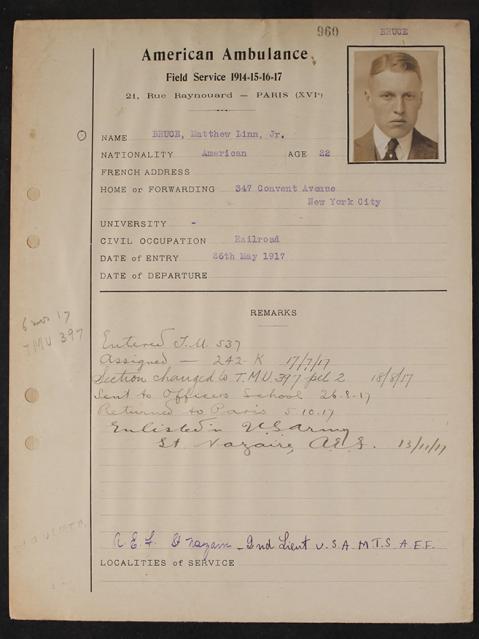 960 BRUCE
American Ambulance
Field Service 1914-15-16-17
21, Rue Raynouard — PARIS (XVIe)
NAME BRUCE, Matthew Linn, Jr.
NATIONALITY American AGE 22
FRENCH ADDRESS
HOME OR FORWARDING 347 Convent Avenue
New York City
UNIVERSITY -
CIVIL OCCUPATION Railroad
DATE OF ENTRY 26th May 1917
DATE OF DEPARTURE
REMARKS
6 nov 17
TMU 397
Entered T.U. 537
Assigned — 242 K 17/7/17
Section changed to T.M.U 397 pel 2 18/8/17
Sent to Officers School 26-8-17
Returned to Paris 5.10.17
Enlisted in U.S. Army
St Nazaire, A.E.F. 13/11/17
A E F St Nazaire - 2nd Lieut U.S.A M.T.S. A.E.F.
LOCALITIES OF SERVICE